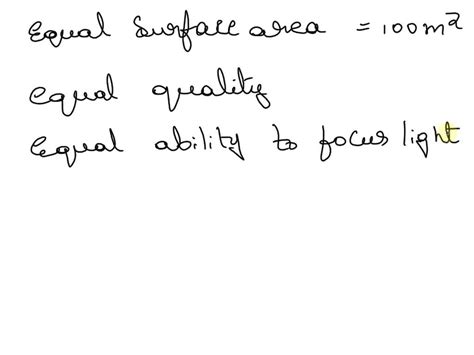 Equal Surface area = 100m²
equal quality
Equal ability to focus light